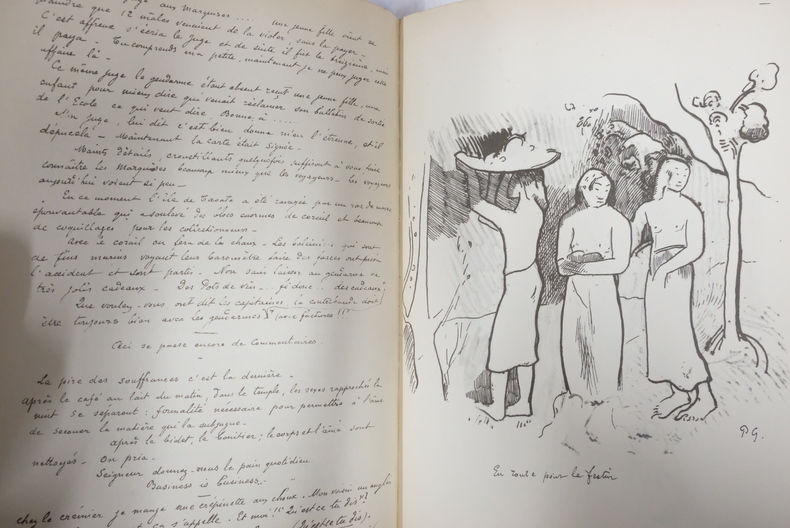 aux Marquises .... une jeune fille vient se
plaindre que 12 mâles venaient de la violer, sans la payer.
C'est affreux s'écria le Juge et de suite il fut le treizième,
il paya. - Tu comprends ma petite, maintenant je ne puis juger cette
affaire là -
Ce même juge le gendarme étant absent reçut une jeune fille, une
enfant pour mieux dire qui venait réclamer son bulletin de sortie
de l'Ecole ce qui veut dire. Bonne à .....
M'n Juge, lui dit c'est bien donne m'en l'étrenne, et il
dépucela - Maintenant la carte était signée -
Maints détails, croustillants quelquefois suffiront à vous faire
connaître les Marquises beaucoup mieux que les voyageurs - les voyageurs
aujourd'hui voient si peu -
En ce moment l'île de a été ravagée par un raz de marée
épouvantable qui a soulevé des blocs énormes de corail et beaucoup
de coquillages pour les collectionneurs -
Avec le corail on fera de la chaux - Les qui sont
de fins marins voyant leur baromètre faire des farces ont prévu
l'accident et sont partis - Non sans laisser au gendarme de
très jolis cadeaux - Des Pots de vin ... fi donc! des cadeaux!
Que voulez-vous ont dit les capitaines, donc
être toujours bien avec les gendarmes (avec factures)
Ceci se passe encore de Commentaires.
La pire des souffrances c'est la dernière -
après le café au lait du matin, Dans le temple, les sexes rapprochés la
nuit se séparent : formalité nécessaire pour permettre à l'âme
de secouer la matière qui la subjugue.
après le bidet, le bénitier ; le corps et l'âme sont
nettoyés - On prie -
Seigneur donnez-nous le pain quotidien
Business is Business -
chez le crémier je mange une crépinette aux choux. Mon voisin un anglais
ça s'appelle. Et moi!! Qu'est ce tu dis?
(Qu'est ce tu dis).
PG.
En route pour le festin